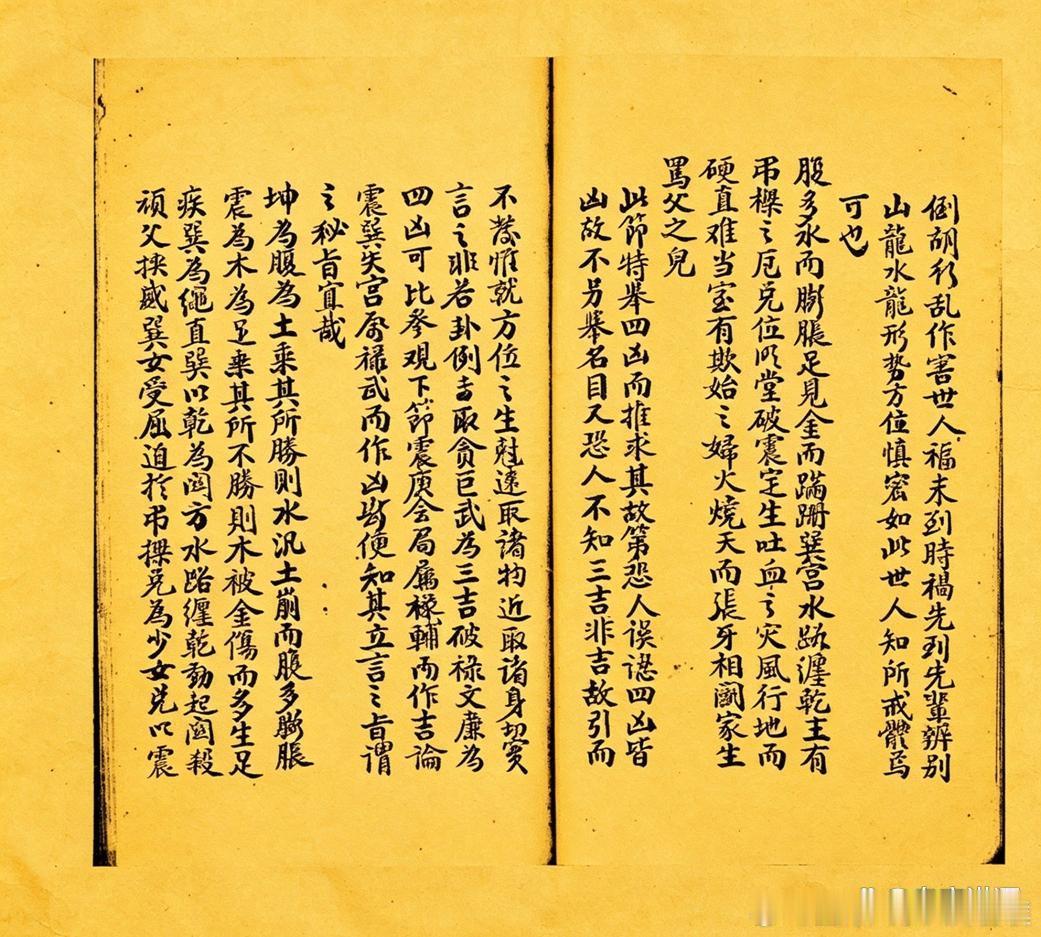 倒胡行乱作害世人福未到時禍先到先輩辨别
山龍水龍形势方位慎宻如此世人知所戒體焉
可也
腹多水而膨脹足見金而蹣跚巽宫水路纏乾主有
吊樑之厄兑位明堂破震定生吐血之灾風行地而
硬直难当室有欺姑之婦火燒天而張牙相鬭家生
罵父之兒
此節特舉四凶而推求其故第恐人误認四凶皆
凶故不另舉名目又恐人不知三吉非吉故引而
不發惟就方位之生尅遠取諸物近取諸身切實
言之非若卦例去取贪巨武為三吉破禄文廉為
四凶可比参观下節震庚会局廉禄輔而作吉論
震巽失宫禄武而作凶断便知其立言之旨谓
之秘旨宜哉
坤為腹為土乘其所勝則水汎土崩而腹多膨脹
震為木為足乘其所不勝則木被金傷而多生足
疾巽為繩直巽以乾為闗方水路纏乾動起闗殺
頑父挟威巽女受屈迫於吊樑兑為少女兑以震